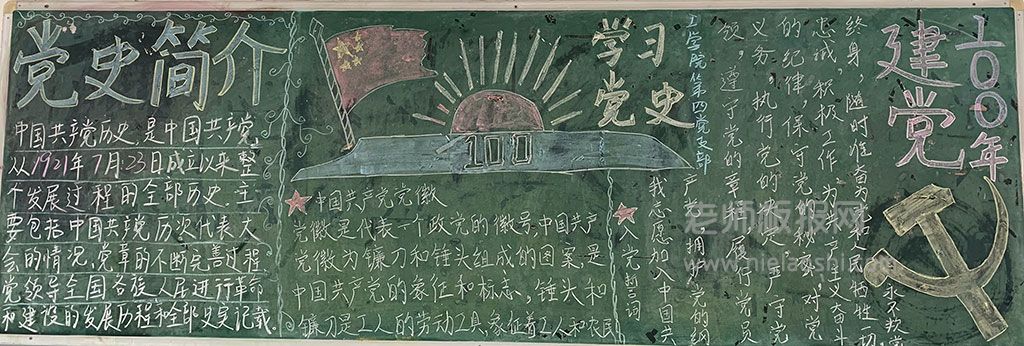 党史简介
中国共产党历史,是中国共产党
从1921年7月23日成立以来整
个发展过程的全部历史.主
要包括中国共产党历次代表大
会的情况,党章的不断完善过程
党领导全国各族人民进行革命
和建设的发展历程和全部史实记载.
100
学习
党史
工学院第四党支部
中国共产党党徽
党徽是代表一个政党的徽号,中国共产
党徽为镰刀和锤头组成的图案,是
中国共产党的象征和标志,锤头和
镰刀是工人的劳动工具,象征着工人和农民
入党誓言词
我志愿加入中国共
产党,拥护党的纲
领,遵守党的章程,履行党员
义务,执行党的决定,严守党
的纪律,保守党的秘密,对党
忠诚,积极工作,为共产主义奋斗
终身,随时准备为党和人民牺牲一切,
永不叛党
建党
100年
老师板报网
www.nielaoshi.com